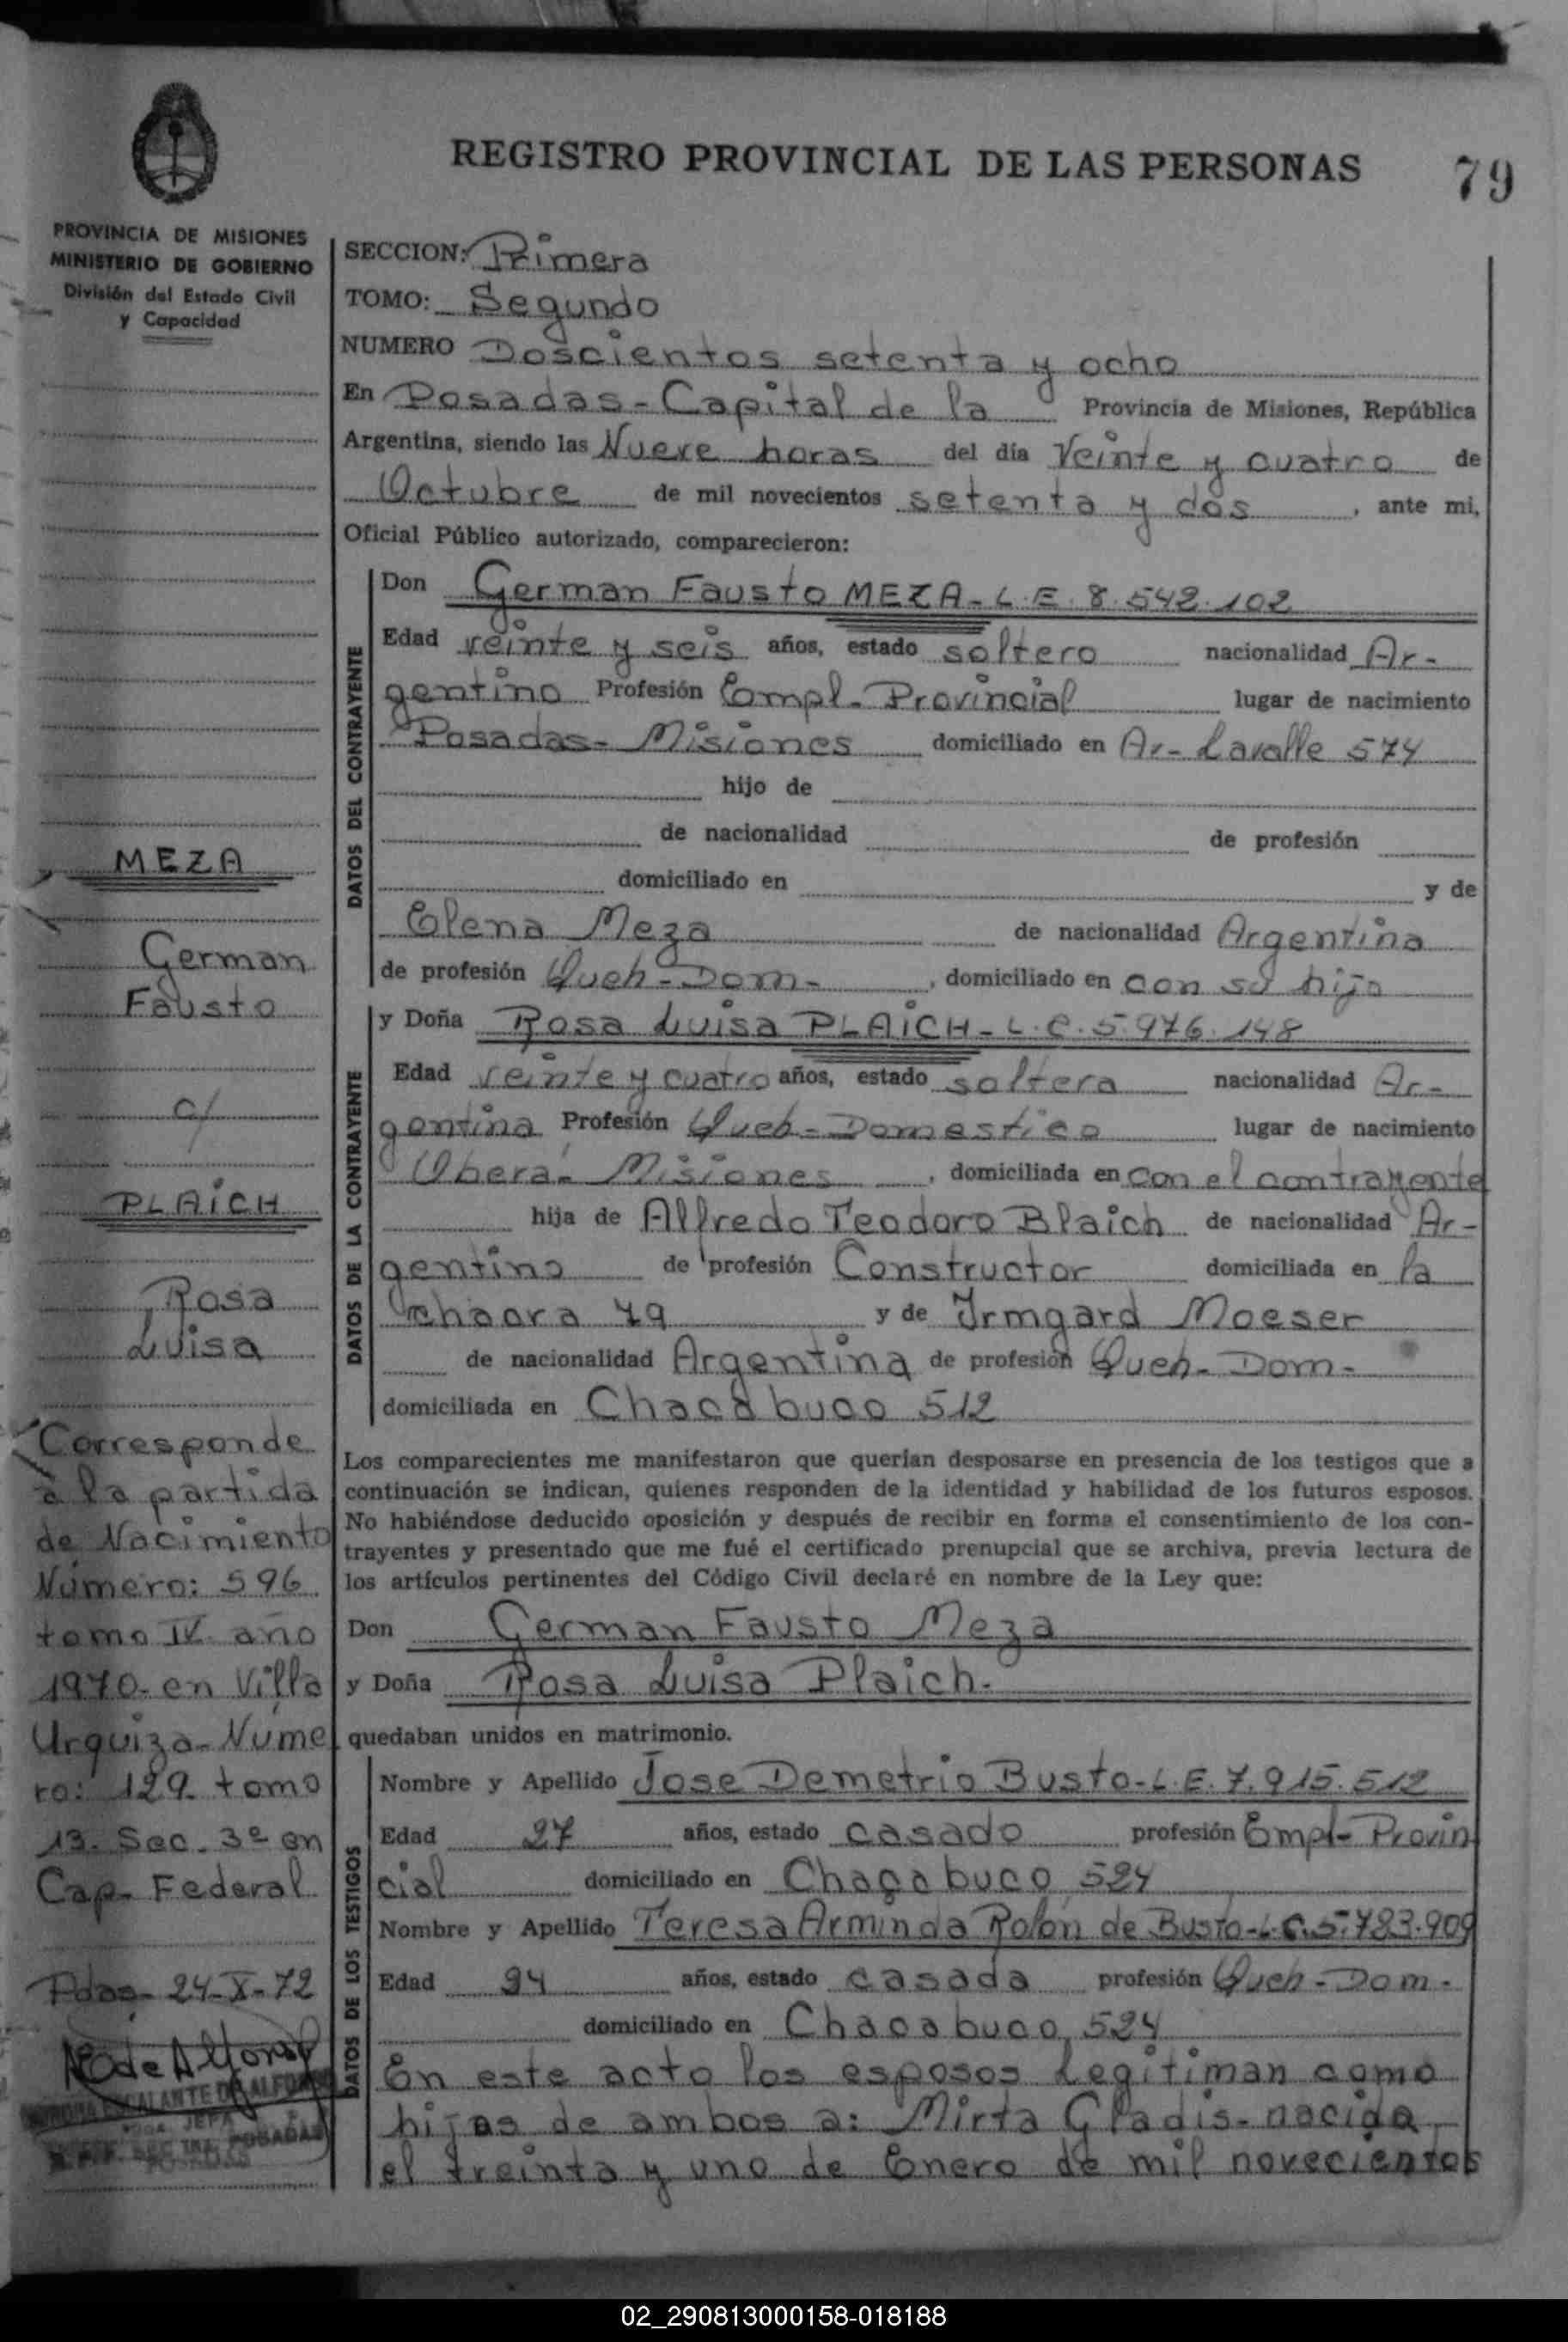 REGISTRO PROVINCIAL DE LAS PERSONAS
79
PROVINCIA DE MISIONES
MINISTERIO DE GOBIERNO
División del Estado Civil
y Capacidad
SECCION: Primera
TOMO: Segundo
NUMERO Doscientos setenta y ocho
En Posadas - Capital de la Provincia de Misiones, República
Argentina, siendo las Nueve horas del día Veinte y cuatro de
Octubre de mil novecientos setenta y dos, ante mi,
Oficial Público autorizado, comparecieron:
DATOS DEL CONTRAYENTE
Don German Fausto MEZA - L.E. 8.542.102
Edad veinte y seis años, estado soltero nacionalidad Ar-
gentino Profesión Empl- Provincial lugar de nacimiento
Posadas- Misiones domiciliado en Av- Lavalle 574
hijo de
de nacionalidad de profesión
domiciliado en y de
Elena Meza de nacionalidad Argentina
de profesión Queh-Dom-, domiciliado en con su hijo
DATOS DE LA CONTRAYENTE
y Doña Rosa Luisa PLAiCH - L.C. 5.976.148
Edad veinte y cuatro años, estado soltera nacionalidad Ar-
gentina Profesión Queh-Domestico lugar de nacimiento
Obera- Misiones, domiciliada en con el contrayente
hija de Alfredo Teodoro Blaich de nacionalidad Ar-
gentino de profesión Constructor domiciliada en la
chacra 79 y de Irmgard Moeser
de nacionalidad Argentina de profesión Queh-Dom-
domiciliada en Chacabuco 512
Los comparecientes me manifestaron que querían desposarse en presencia de los testigos que a
continuación se indican, quienes responden de la identidad y habilidad de los futuros esposos.
No habiéndose deducido oposición y después de recibir en forma el consentimiento de los con-
trayentes y presentado que me fué el certificado prenupcial que se archiva, previa lectura de
los artículos pertinentes del Código Civil declaré en nombre de la Ley que:
Don German Fausto Meza
y Doña Rosa Luisa Plaich.
quedaban unidos en matrimonio.
DATOS DE LOS TESTIGOS
Nombre y Apellido Jose Demetrio Busto - L.E. 7.915.512
Edad 27 años, estado casado profesión Empl- Provin
cial domiciliado en Chacabuco 524
Nombre y Apellido Teresa Arminda Rolón de Busto - L.C. 5.783.909
Edad 34 años, estado casada profesión Queh-Dom-
domiciliado en Chacabuco 524
En este acto los esposos Legitiman como
hijas de ambos a: Mirta Gladis - nacida
el treinta y uno de Enero de mil novecientos
MEZA
German
Fausto
c/
PLAiCH
Rosa
Luisa
Corresponde
a la partida
de Nacimiento
Número: 596
tomo IV año
1970 - en Villa
Urquiza - Nume
ro: 129 tomo
13. Sec. 3ª en
Cap- Federal
Pdas- 24-X-72
02_290813000158-018188